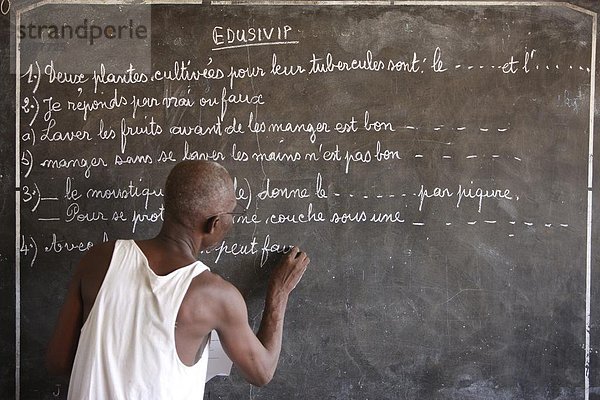 strandperle
EDUSIVIP
1.) Deux plantes cultivées pour leur tubercules sont: le ..... et l'......
2.) Je réponds par vrai ou faux
a) Laver les fruits avant de les manger est bon - - - - - -
b) manger sans se laver les mains n'est pas bon - - - - - -
3.) — le moustique le) donne le ........ par piqure.
— Pour se couche sous une - - - - - - -
4.) Avec peut